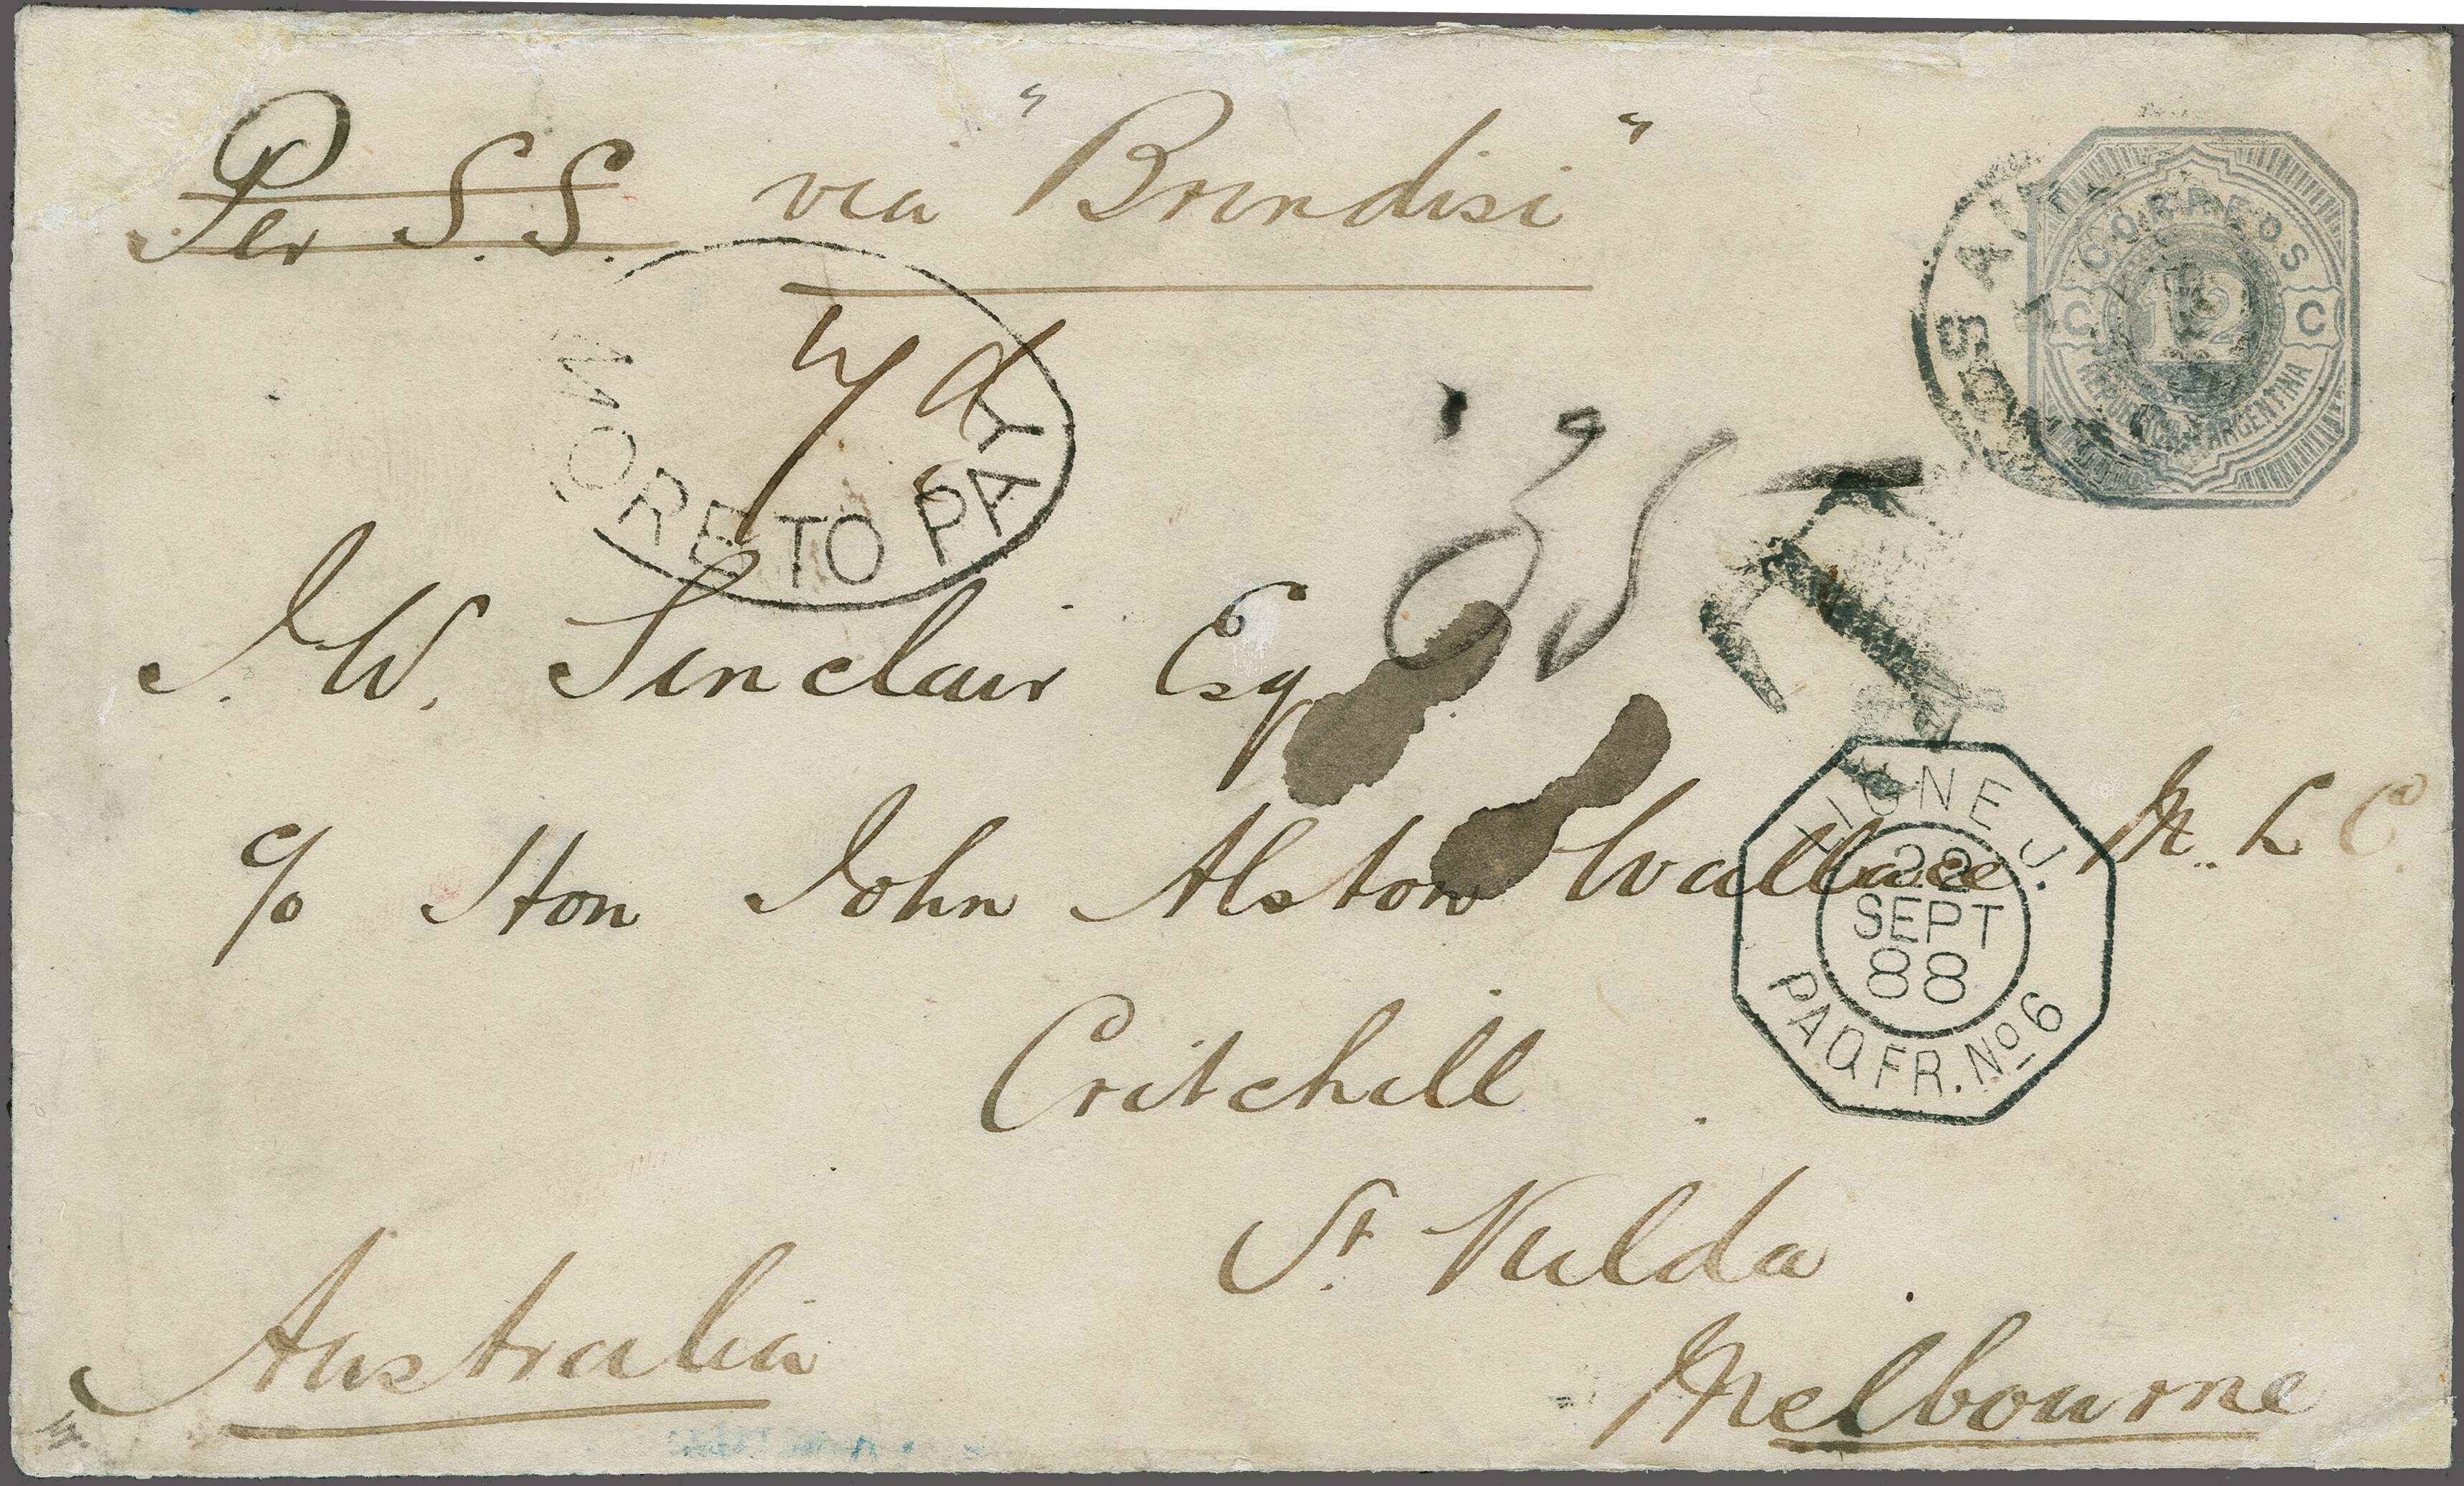 Per S.S. via "Brindisi"
CORREOS
C 12 C
REPUBLICA ARGENTINA
MORE TO PAY
J. W. Sinclair Esq
c/o Hon John Alston Wallace M.L.C.
LIGNE J.
22
SEPT
88
PAQ. FR. No 6
Critchill
St. Kulda
Australia
Melbourne